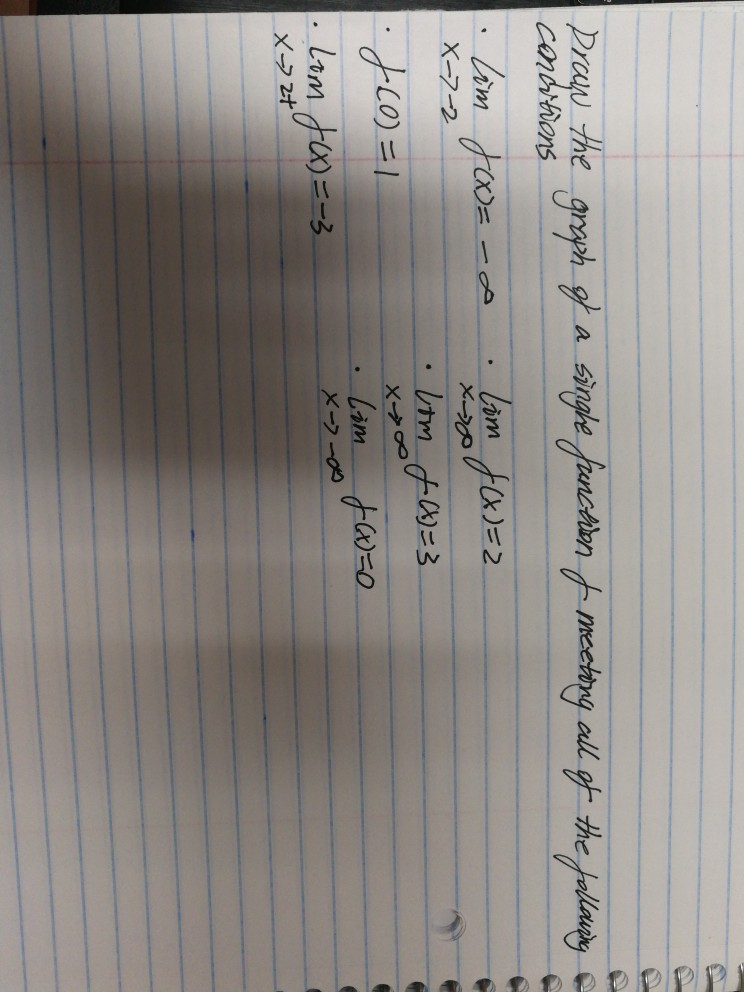 Draw the graph of a single function f meeting all of the following
conditions
· lim f(x) = -∞ · lim f(x) = 2
x→-2 x→∞
· f(0) = 1 · lim f(x) = 3
x→∞
· lim f(x) = -3 · lim f(x) = 0
x→2+ x→-∞